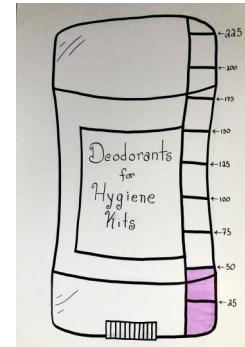 Deodorants
for
Hygiene
Kits
←225
←200
←175
←150
←125
←100
←75
←50
←25